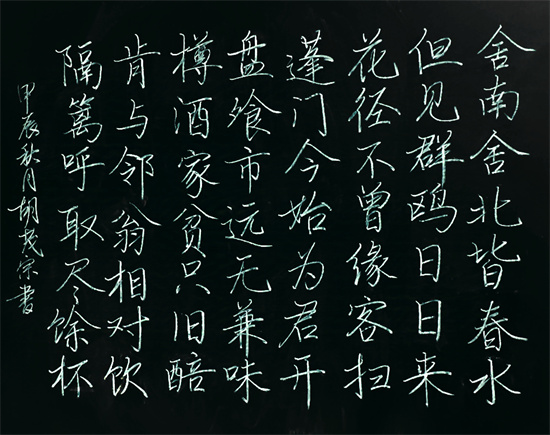 舍南舍北皆春水
但见群鸥日日来
花径不曾缘客扫
蓬门今始为君开
盘飧市远无兼味
樽酒家贫只旧醅
肯与邻翁相对饮
隔篱呼取尽馀杯
甲辰秋月胡宗书